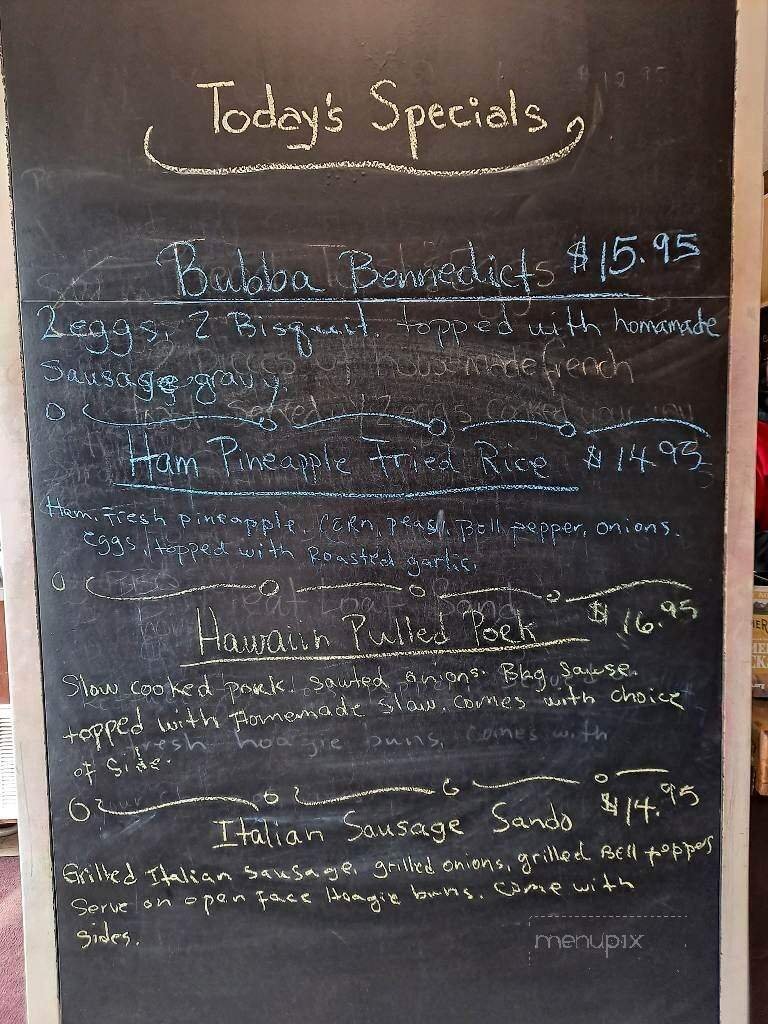 Today's Specials
Bubba Bennedicts $15.95
2 eggs, 2 Bisquit. topped with homamade
sausage gravy.
Ham Pineapple Fried Rice $14.95
Ham. Fresh pineapple, corn, peas, Bell pepper, onions.
eggs, topped with Roasted garlic.
Hawaiin Pulled Pork $16.95
Slow cooked pork. sawted onions. Bbq sause.
topped with Homemade slaw. comes with choice
of side.
Italian Sausage Sando $14.95
Grilled Italian sausage, grilled onions, grilled Bell peppers
Serve on open face Hoagie buns. Come with
sides.
menupix